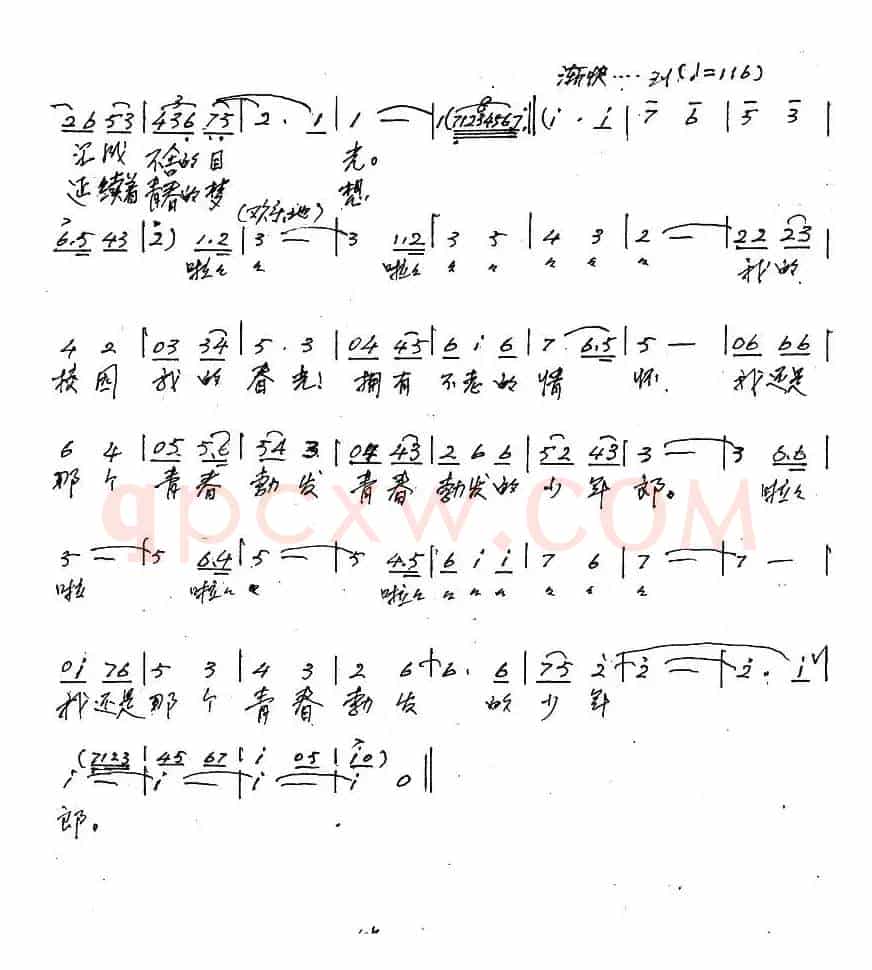 渐快····到(♩=116)
26 53 | 436 75 | 2 · 1 | 1 — | 1(71234567 | (i · i | 7 6 | 5 3 |
不舍的目 光。
延续着青春的梦 想
(欢乐地)
6.5 43 | 2) 1.2 | 3 — | 3 1.2 | 3 5 | 4 3 | 2 — | 22 23 |
啦 啦 我的
4 2 | 03 34 | 5 · 3 | 04 45 | 6 i 6 | 7 6.5 | 5 — | 06 66 |
校园 我的春光! 拥有不老的情怀. 我还是
6 4 | 05 5.6 | 54 3 | 04 43 | 2 6 6 | 52 43 | 3 — | 3 6.6 |
那个青春勃发 青春勃发的少年郎。 啦
5 — | 5 6.4 | 5 — | 5 4.5 | 6 i i | 7 6 | 7 — | 7 — |
啦 啦 啦
0i 76 | 5 3 | 4 3 | 2 6 | 6. 6 | 75 2 | 2 — | 2. i |
我还是那个青春勃发 的少年
(7123 | 45 67 | i 05 | i0)
i — | i — | i — | i 0 ||
郎。
qpcxw.COM